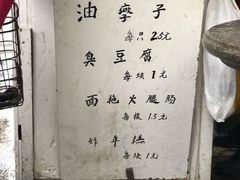 油墩子
每只 2.5元
臭豆腐
每块 1元
面拖火腿肠
每根 1.5元
炸年糕
每块 1元